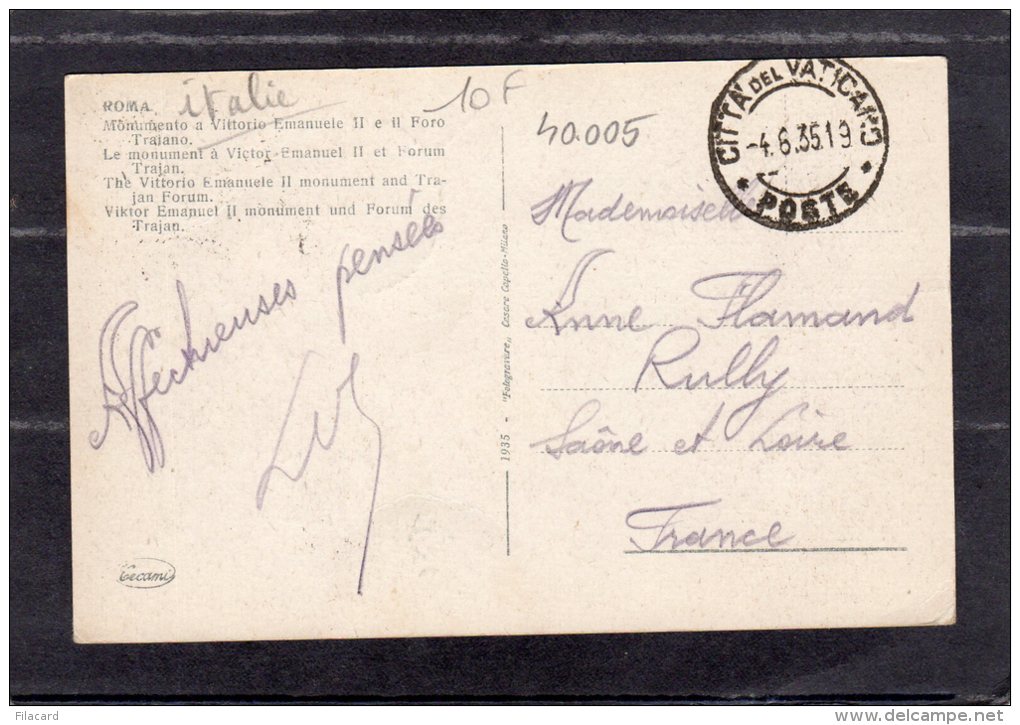 ROMA.
italie
10 F
Monumento a Vittorio Emanuele II e il Foro
Traiano.
Le monument à Victor Emanuel II et Forum
Trajan.
The Vittorio Emanuele II monument and Tra-
jan Forum.
Viktor Emanuel II monument und Forum des
Trajan.
Affectueuses pensées
Cecami
1935 - "Fotogravure„ Cesare Capello-Milano
40.005
CITTA' DEL VATICANO
-4.6.35.19
* POSTE *
Mademoiselle
Anne Flamand
Rully
Saône et Loire
France
Filacard
www.delcampe.net